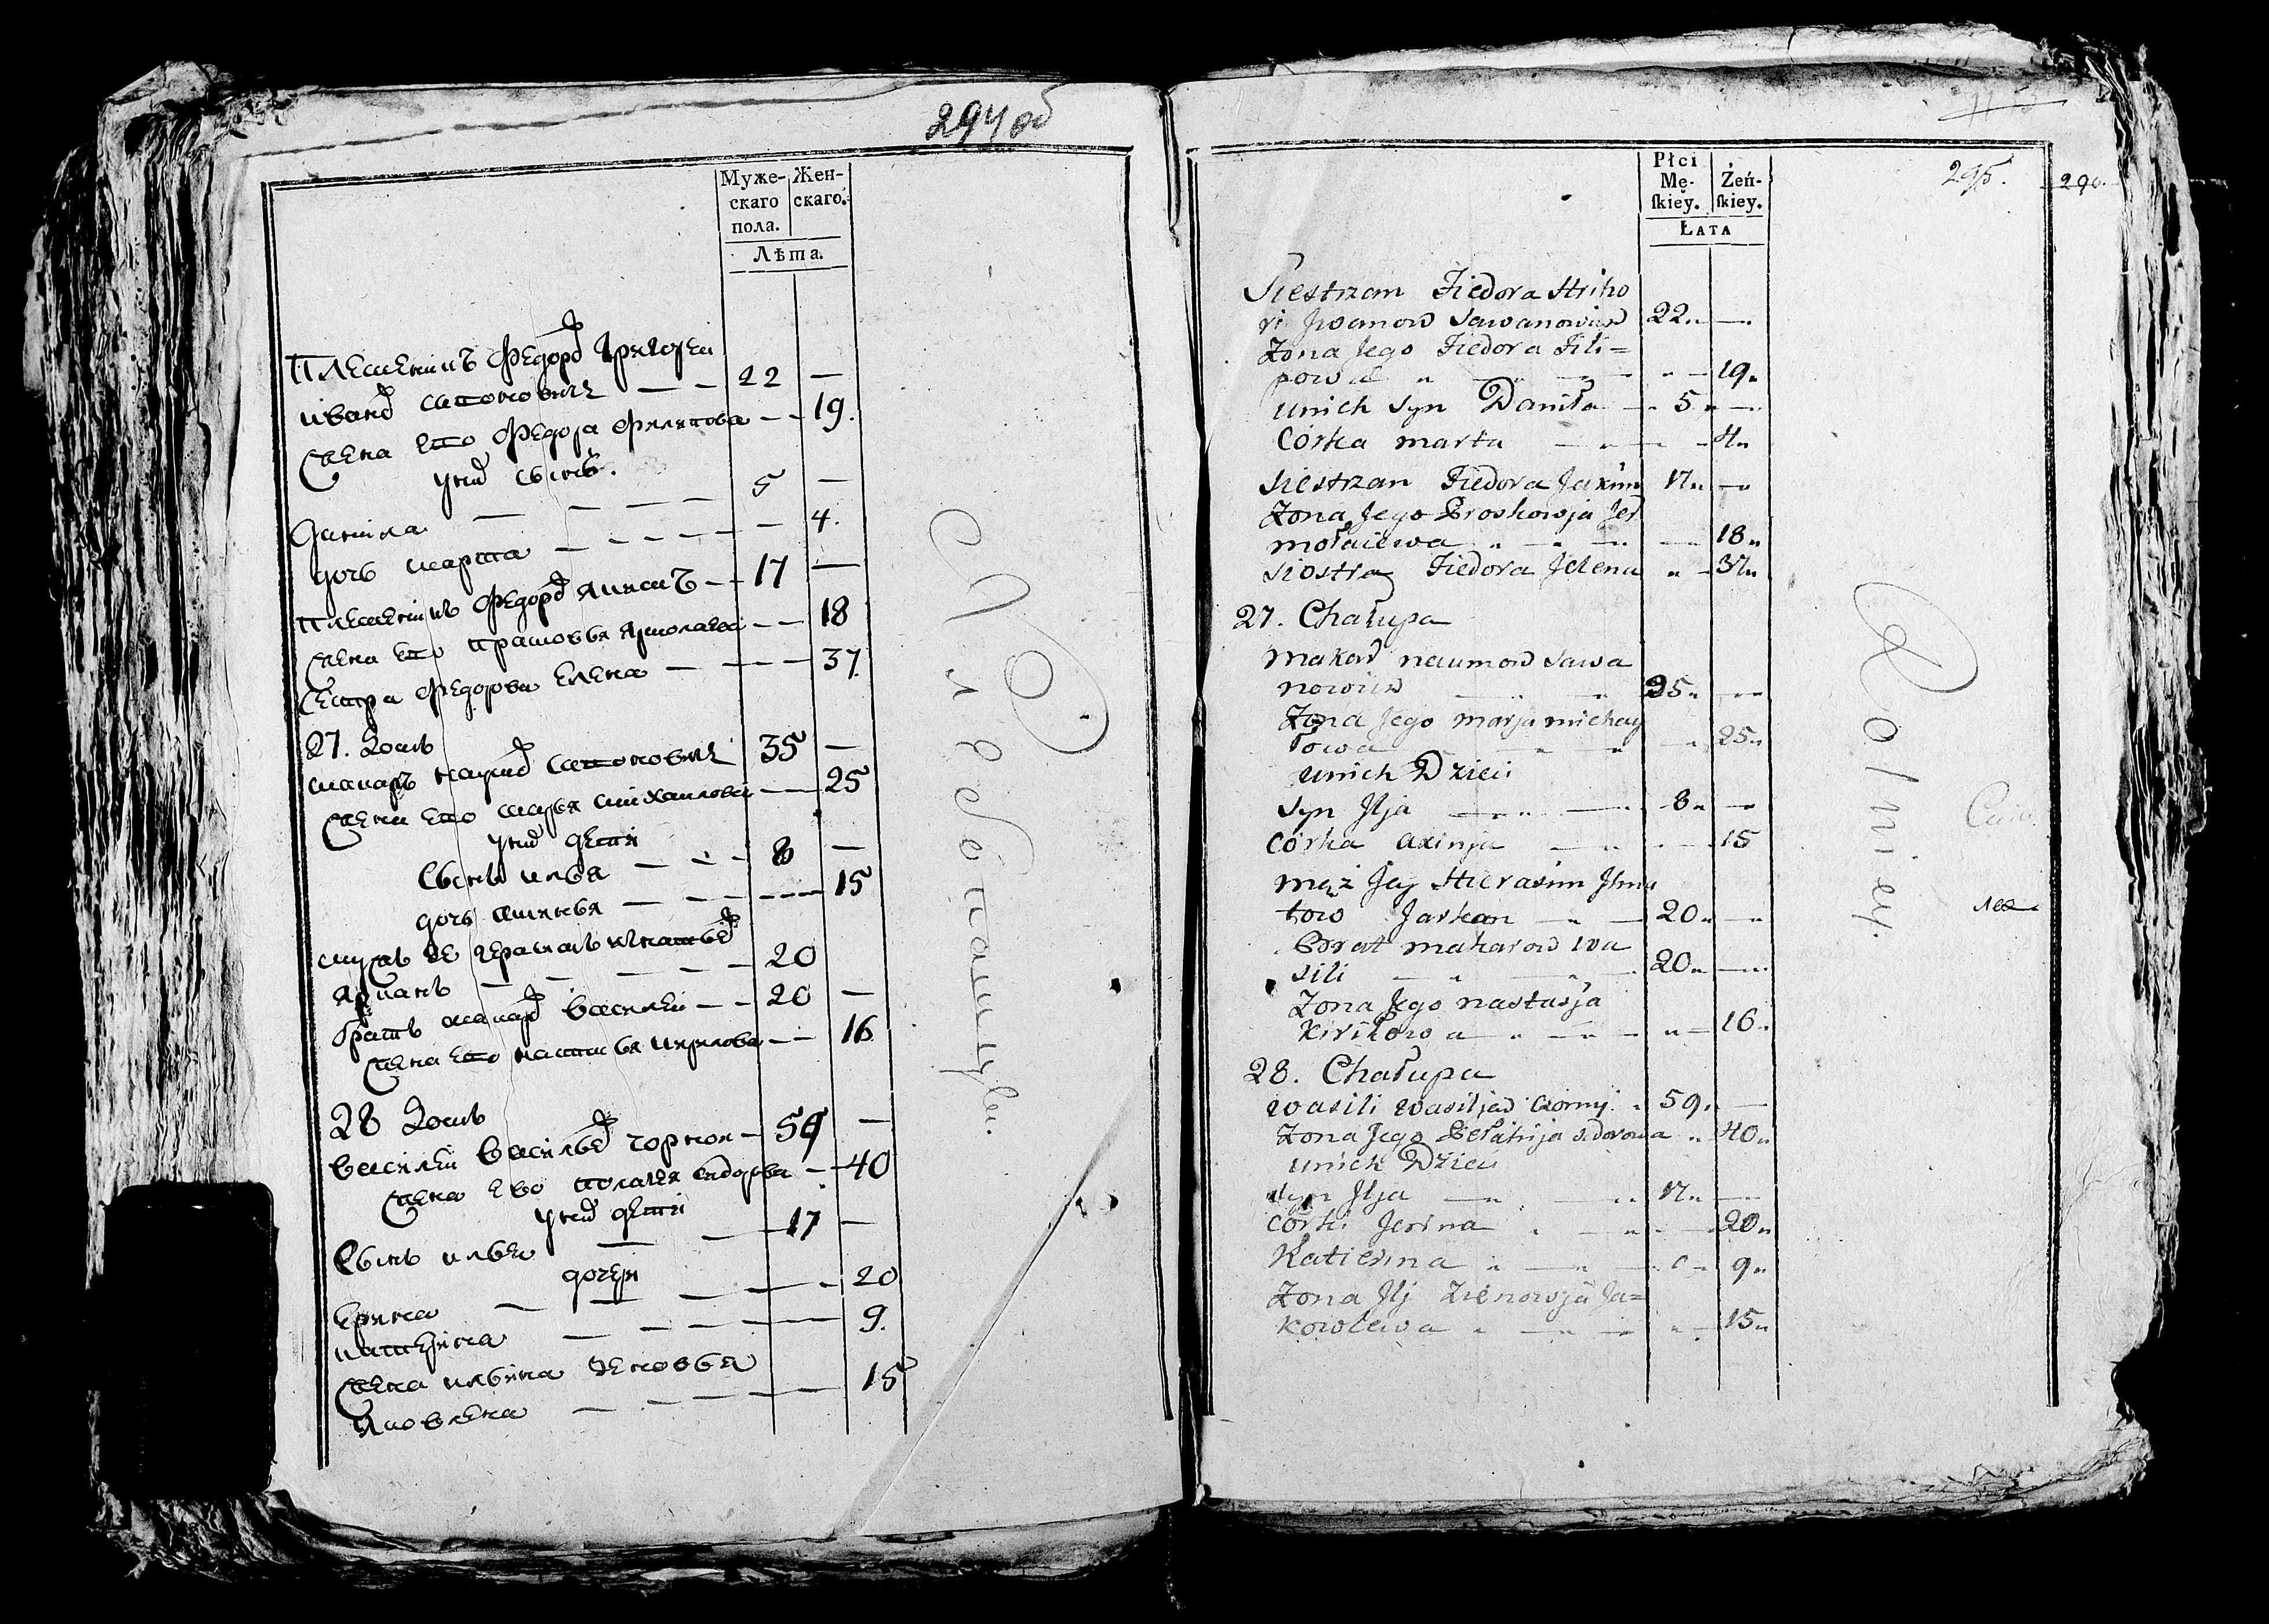 294 об
Муже-
скаго
пола.
Жен-
скаго.
Лѣта.
Племенникъ Федоров Григорей
Иванов Сапонович — — 22 —
Жена его Федора Филипова — — 19.
У них сынъ.
Данила — — — 5 —
дочь Марта — — — — 4.
Племенникъ Федоров Якимъ — — 17 —
Жена его Прасковья Ярмолаева — — 18
Сестра Федорова Елена — — — — 37.
27. Домъ
Макаръ Наумов Сапонович 35 —
Жена его Марья Михайлова — — 25
У них дети
Сынъ Илья — — — 8 —
дочь Аксинья — — — — 15
мужъ ее Герасимъ Игнатьев
— — — 20
братъ Макаров Василей — — 20 —
Жена его Настасья Кирилова — — 16
28 Домъ
Василей Васильев Чорной — 59 —
Жена его Полагея Сидорова — — 40
У них дети
Сынъ Илья — — 17 —
дочери
Ерина — — — — 20
Катерина — — — — 9.
Жена Ильина Зеновья
Яковлева — — — — 15
Хлебопашцы.
295.
Płci
Mę-
ſkiey.
Żeń-
ſkiey.
Łata
Siestrzan Fiedora Hriho
ri Jwanow Sawanowicz 22 „ —
Zona Jego Fiedora Fili=
powa „ — 19 „
unich Syn Daniła — 5 „ —
Córka marta — 4 „
Siestrzan Fiedora Jakim 17 „ —
Zona Jego Proskowja Jer
mołaiewa „ — 18 „
Siostra Fiedora Jelena „ — 37 „
27. Chałupa
makar naumow Sawa
nowicz — 35 „ —
Zona Jego marja michay
łowa — 25 „
unich Dzieci
Syn Jlja — 8 „ —
Córka axinja — 15
mąż Jey Hierasim Jhna
tow Jarkan — 20 „ —
Brat makarow wa
sili — 20 „ —
Zona Jego nastasja
Kiriłowa „ — 16 „
28. Chałupa
wasili wasiljew Czornyj „ 59 „ —
Zona Jego Pełahija Sidorowa „ 40 „
unich Dzieci
Syn Jlja — 17 „ —
Córki Jerina — 20 „
Katierina — 9 „
Zona Jlj Zienowja Ja=
kowlewa „ — 15 „
Rolniey.